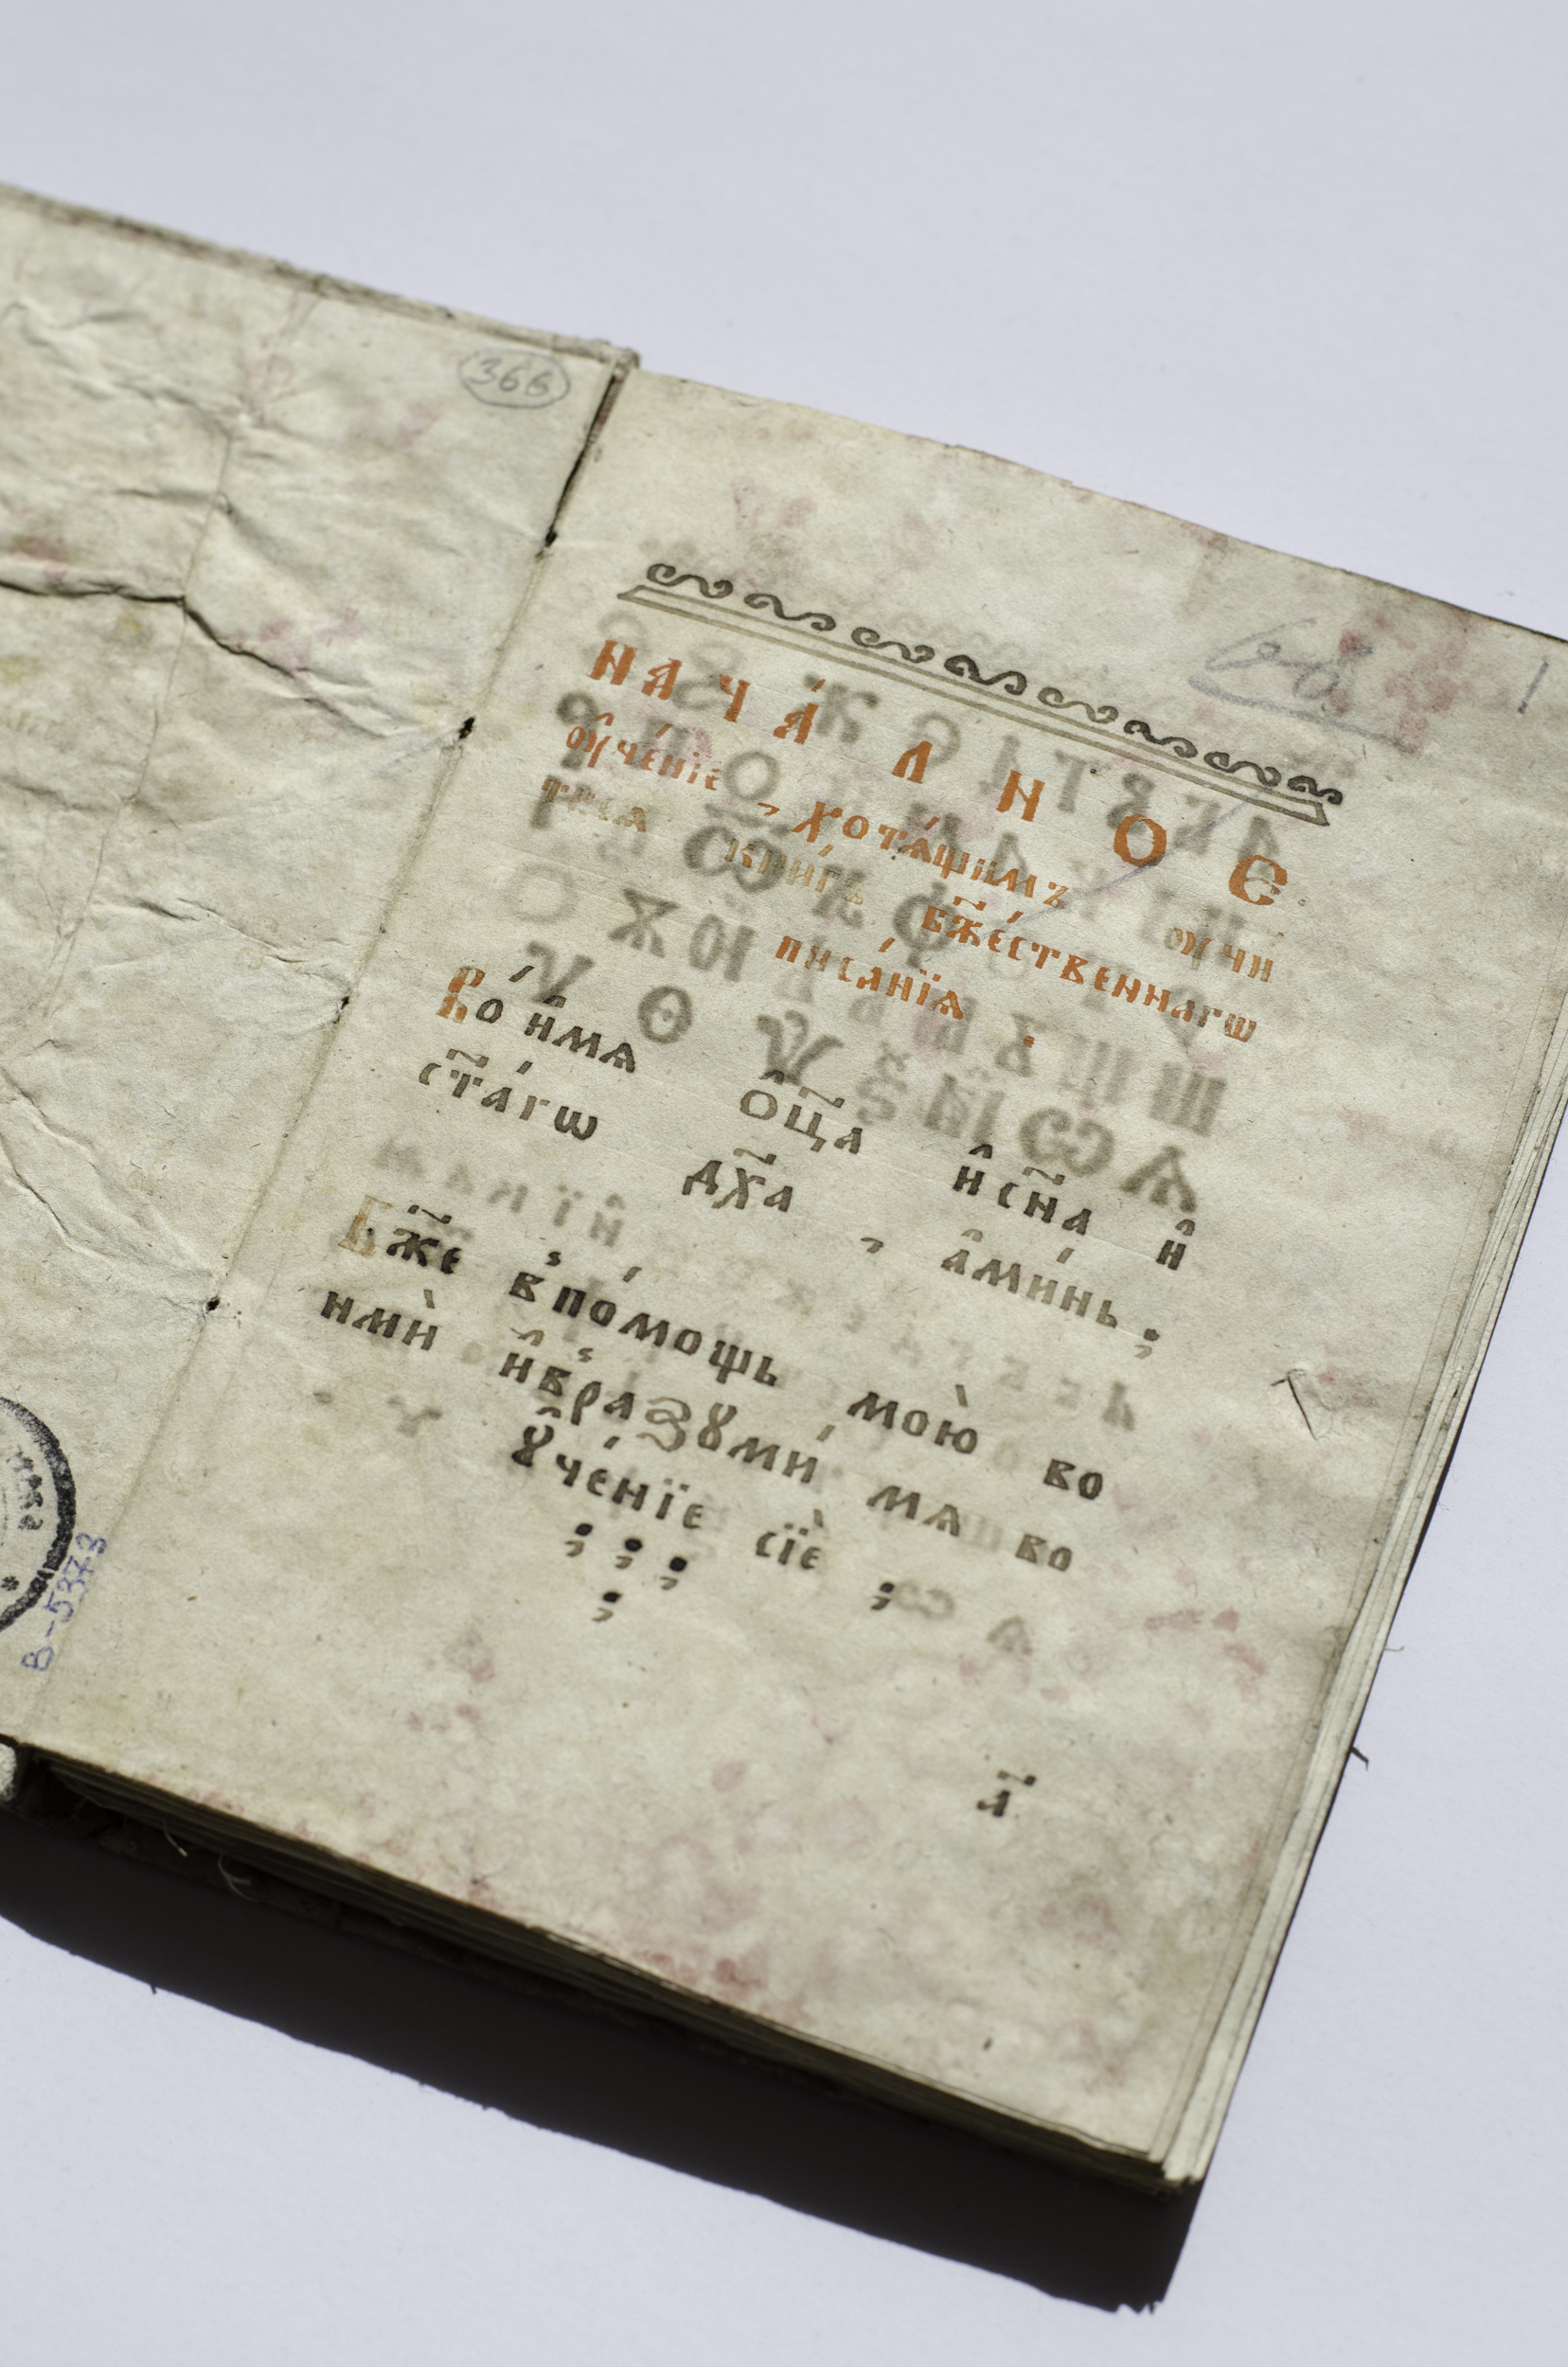 366
1
НАЧА́ЛНОЕ
ᲂу҆че́нїе , хотѧ́щымъ ᲂучи
тисѧ книгъ бж҃е́ственнагѡ
писа́нїѧ .
Во и҆́мѧ ѻ҆ц҃а и҆ сн҃а и҆
ст҃а́гѡ дх҃а , а҆ми́нь ;
Бж҃е в̾ по́мощь мою̀ во
нмѝ и҆ в̾разꙋми́ мѧ во
ꙋ҆че́нїе сїѐ ;
а҃
В-5373